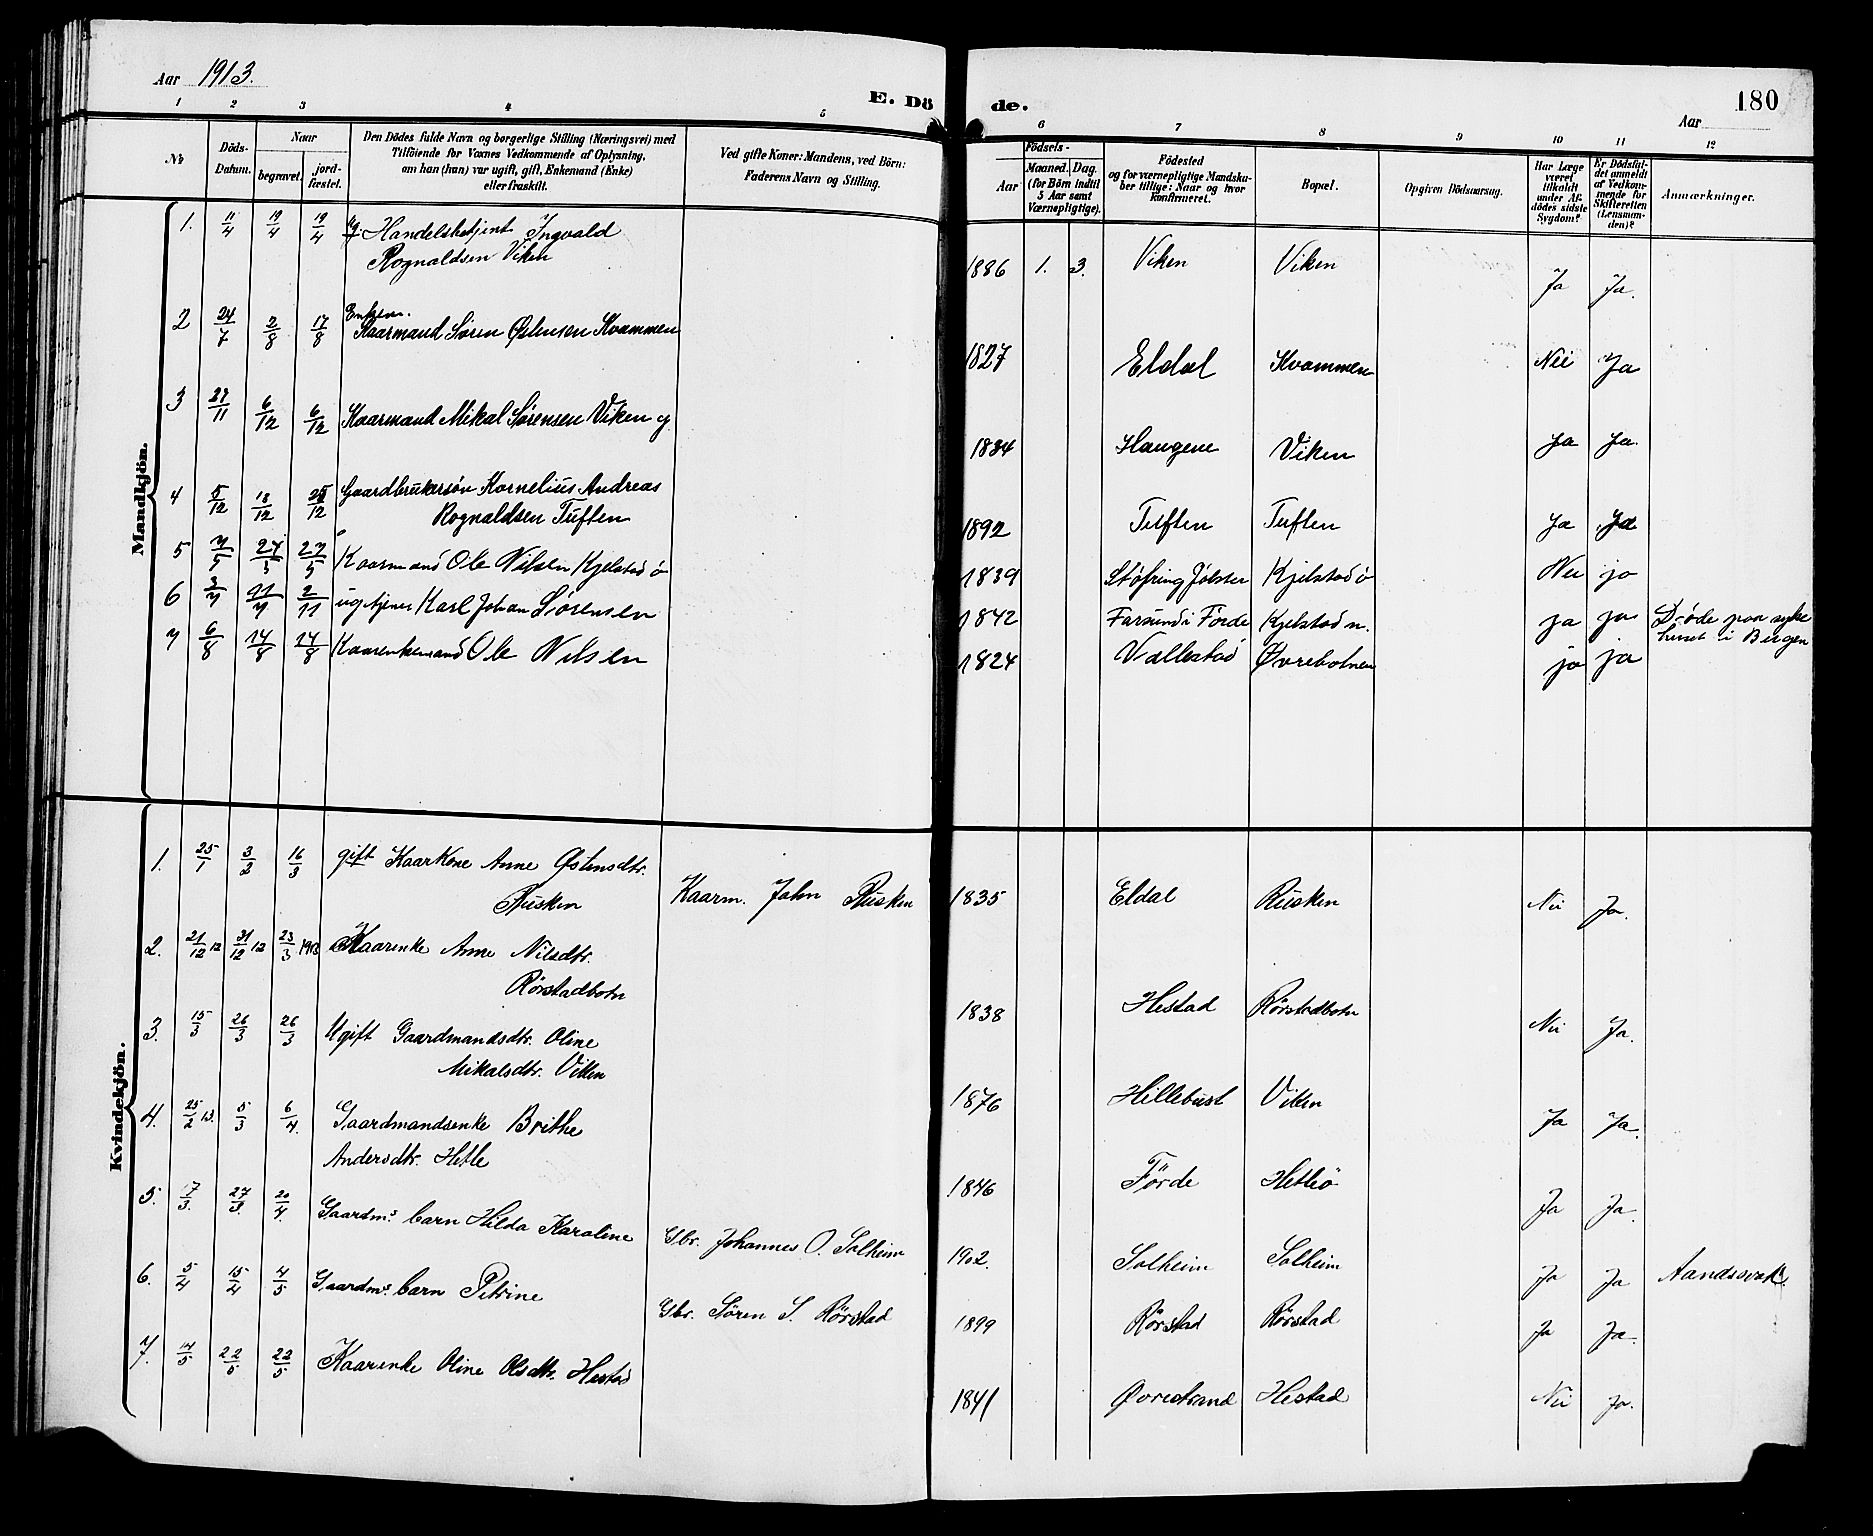 Aar 1913.
E. Dö de.
180
Aar
1 2 3 4 5 6 7 8 9 10 11 12
No
Döds-Datum.
Naar
begravet.
jord-fæstet.
Den Dödes fulde Navn og borgerlige Stilling (Næringsvei) med
Tilföiende for Voxnes Vedkommende af Oplysning,
om han (hun) var ugift, gift, Enkemand (Enke)
eller fraskilt.
Ved gifte Koner: Mandens, ved Börn:
Faderens Navn og Stilling.
Födsels-
Aar
Maaned. Dag.
(for Börn indtil
5 Aar samt
Værnepligtige).
Födested
og for værnepligtige Mandskaber tillige: Naar og hvor
konfirmeret.
Bopæl.
Opgiven Dödsaarsag.
Har Læge
været
tilkaldt
under Afdödes sidste
Sygdom?
Er Dödsfaldet anmeldt
af Vedkommende for
Skifteretten
(Lensmanden)?
Anmærkninger.
Mandkjön.
1. 11/4 19/4 19/4 Ug. Handelsbetjent Ingvald
Rognaldsen Viken
1886 1. 3. Viken Viken Ja Ja.
2 24/7 2/8 17/8 Enkem.
Kaarmand Søren Østensen Kvammen
1827 Eldal Kvammen Nei Ja
3 27/11 6/12 6/12 Kaarmand Mikal Sørensen Viken g.
1834 Haugene Viken Ja Ja.
4 5/12 18/12 25/12 Gaardbrukersøn Kornelius Andreas
Rognaldsen Tuften
1892 Tuften Tuften Ja Ja
5 7/5 27/5 27/5 Kaarmand Ole Nilsen Kjelstad ø
1839 Støfring Jølster Kjelstad ø Nei jo
6 3/7 11/7 2/11 ug tjener Karl Johan Sørensen
1842 Farsund i Förde Kjelstad n. ja ja Døde paa syke
huset i Bergen
7 6/8 14/8 14/8 Kaarenkemand Ole Nilsen
1824 Vallestad Øvrebotnen ja ja
Kvindekjön.
1. 25/1 3/2 16/3 gift Kaarkone Anne Østensdtr.
Rusken
Kaarm. John Rusken 1835 Eldal Rusken Nei Ja.
2. 21/12 12 31/12 12 23/3 1913 Kaarenke Anne Nilsdtr.
Rørstadbotn
1838 Hestad Rørstadbotn Nei Ja.
3. 15/3 26/3 26/3 Ugift Gaardmandsdtr. Oline
Mikalsdtr. Viken
1876 Hillebust Viken Ja Ja.
4. 25/2 13. 5/3 6/4. Gaardmandsenke Brithe
Andersdtr. Hetle
1846 Förde Hetleö Ja Ja.
5. 17/3. 27/3. 20/4. Gaardms. barn Hilda Karoline
Gbr. Johannes O. Solheim 1902. Solheim Solheim Ja Ja
6. 5/4 15/4 4/5 Gaardms. barn Petrine
Aandssvak
Gbr. Søren S. Rørstad 1899 Rørstad Rørstad Ja Ja.
7. 14/5 22/5 22/5 Kaarenke Oline Olsdtr. Hestad
1841 Øvrestrand Hestad Nei Ja.